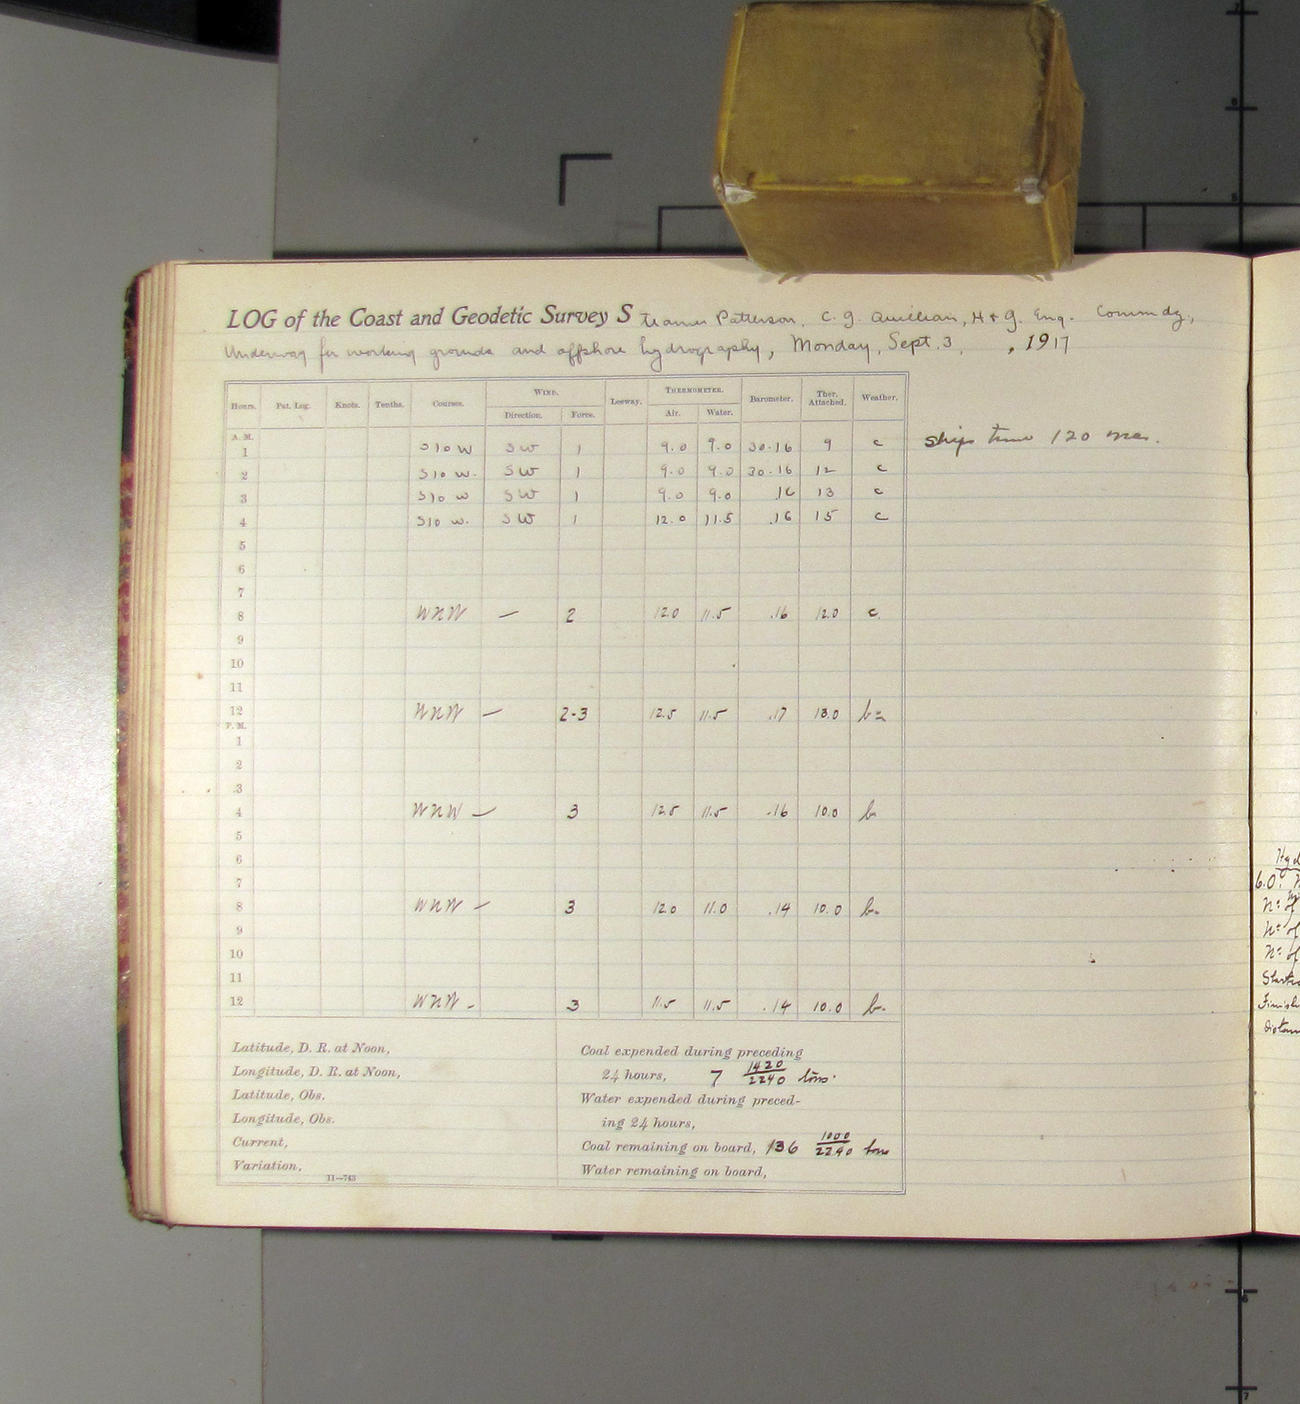 LOG of the Coast and Geodetic Survey Steamer Patterson, C. G. Quillian, H & G. Eng. Commdg,
Underway for working grounds and offshore hydrography, Monday, Sept. 3, , 1917
Hours. Pat. Log. Knots. Tenths. Courses. WIND. Leeway. THERMOMETER. Barometer. Ther. Attached. Weather.
Direction. Force. Air. Water.
A. M.
1 S10W SW 1 9.0 9.0 30.16 9 c ships time 120 mer.
2 S10 W. SW 1 9.0 9.0 30.16 12 c
3 S10 W SW 1 9.0 9.0 .16 13 c
4 S10 W. SW 1 12.0 11.5 .16 15 c
5
6
7
8 WNW — 2 12.0 11.5 .16 12.0 c.
9
10
11
12 WNW — 2-3 12.5 11.5 .17 13.0 b=
P. M.
1
2
3
4 WNW — 3 12.5 11.5 .16 10.0 b
5
6
7
8 WNW — 3 12.0 11.0 .14 10.0 b.
9
10
11
12 WNW - 3 11.5 11.5 .14 10.0 b.
Latitude, D. R. at Noon,
Longitude, D. R. at Noon,
Latitude, Obs.
Longitude, Obs.
Current,
Variation,
11—743
Coal expended during preceding
24 hours, 7 1420/2240 tons.
Water expended during preced-
ing 24 hours,
Coal remaining on board, 136 1000/2240 tons
Water remaining on board,
Hyd
6.0.
No. of
No. of
No. of
Started
Finish
Distan